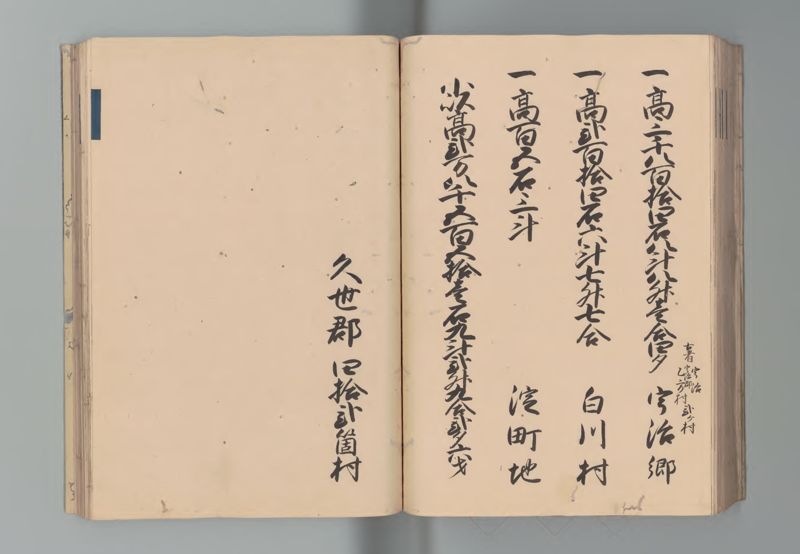 一高三千八百拾四石八斗八升壱合四夕 宇治郷
一高弐百拾四石六斗七升七合 白川村
一高百五石三斗 淀町地
小以高弐万八千五百五拾壱石九斗弐升九合弐夕六才
久世郡 四拾弐箇村